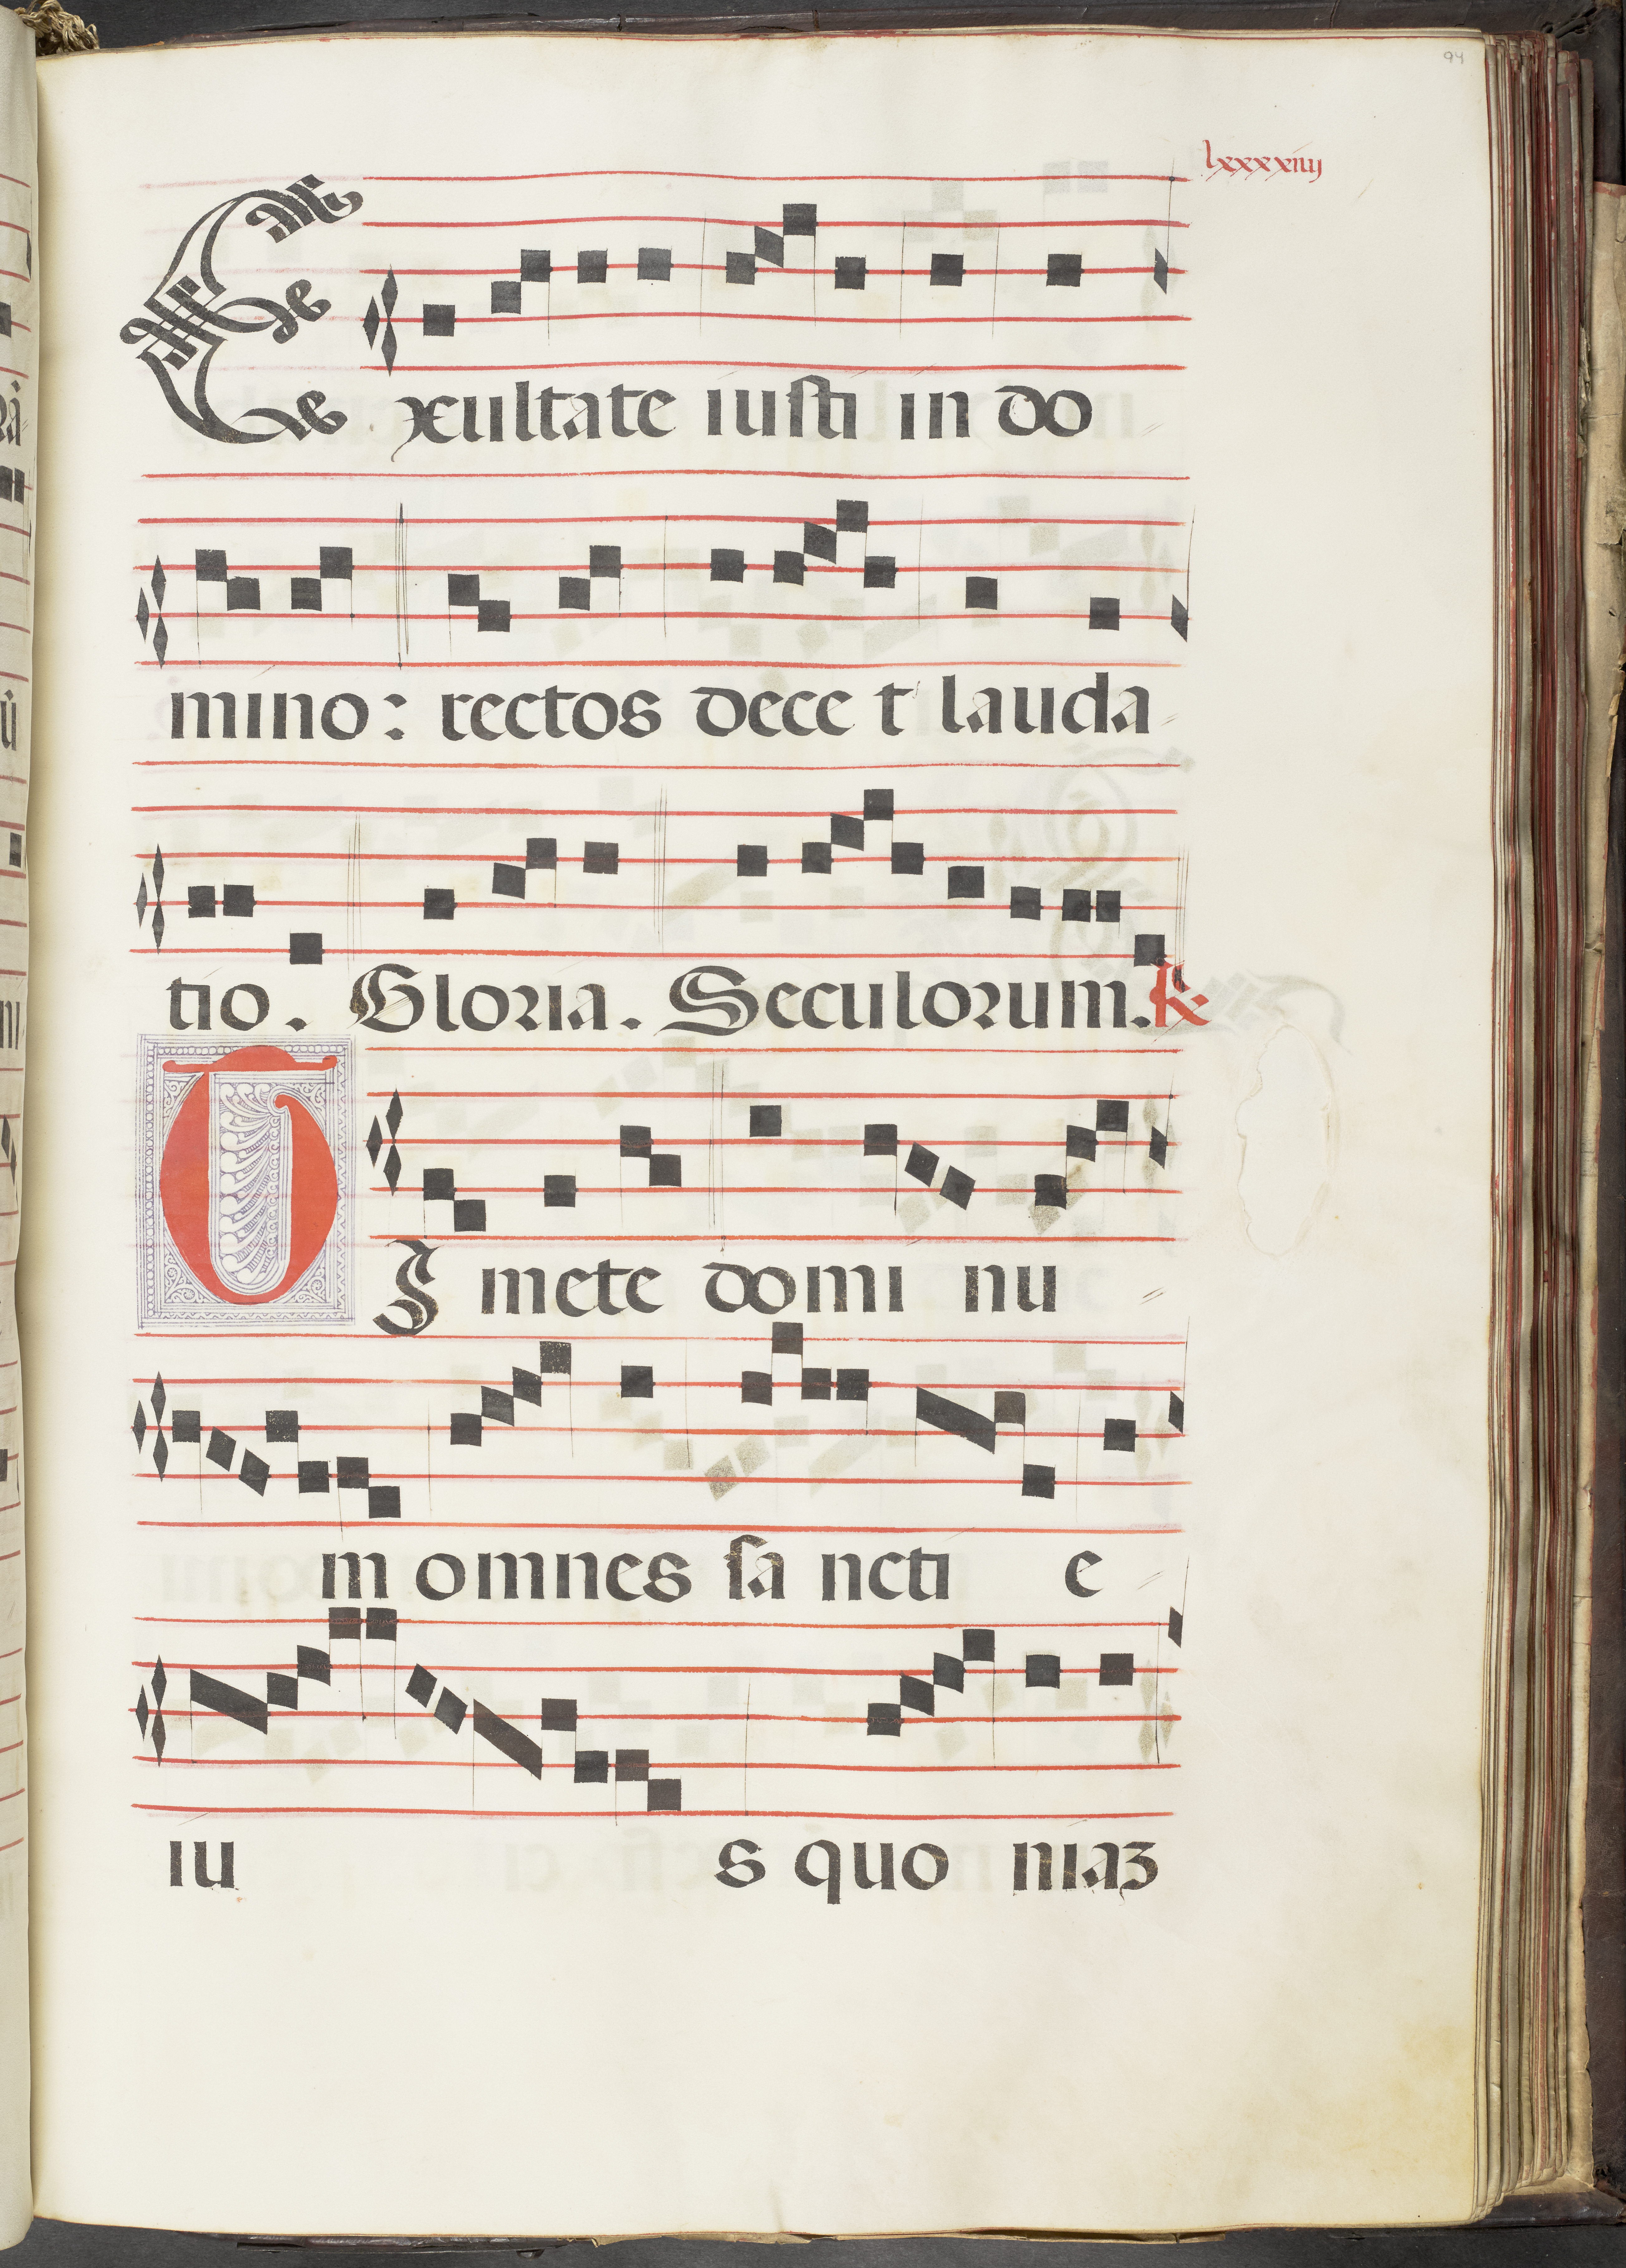 94
lxxxxiiij
Exultate iusti in do
mino: rectos dece t lauda
tio. Gloria. Seculorum. R
TImete domi nu
m omnes sa ncti e
iu s quo niaz